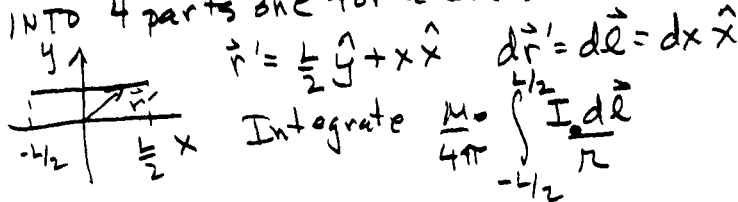 INTO 4 parts one for a
y r⃗' = L/2 ŷ + x x̂ dr⃗' = dl⃗ = dx x̂
r⃗'
-L/2 L/2 x Integrate μ₀/4π ∫_{-L/2}^{L/2} I₀dl⃗/r